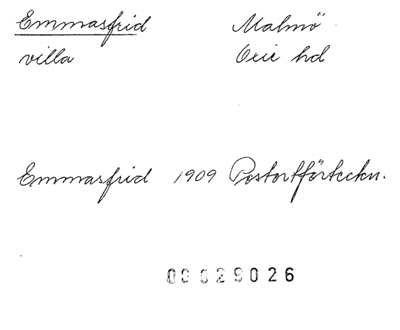 Emmasfrid Malmö
villa Oxie hd
Emmasfrid 1909 Postortförteckn.
00029026